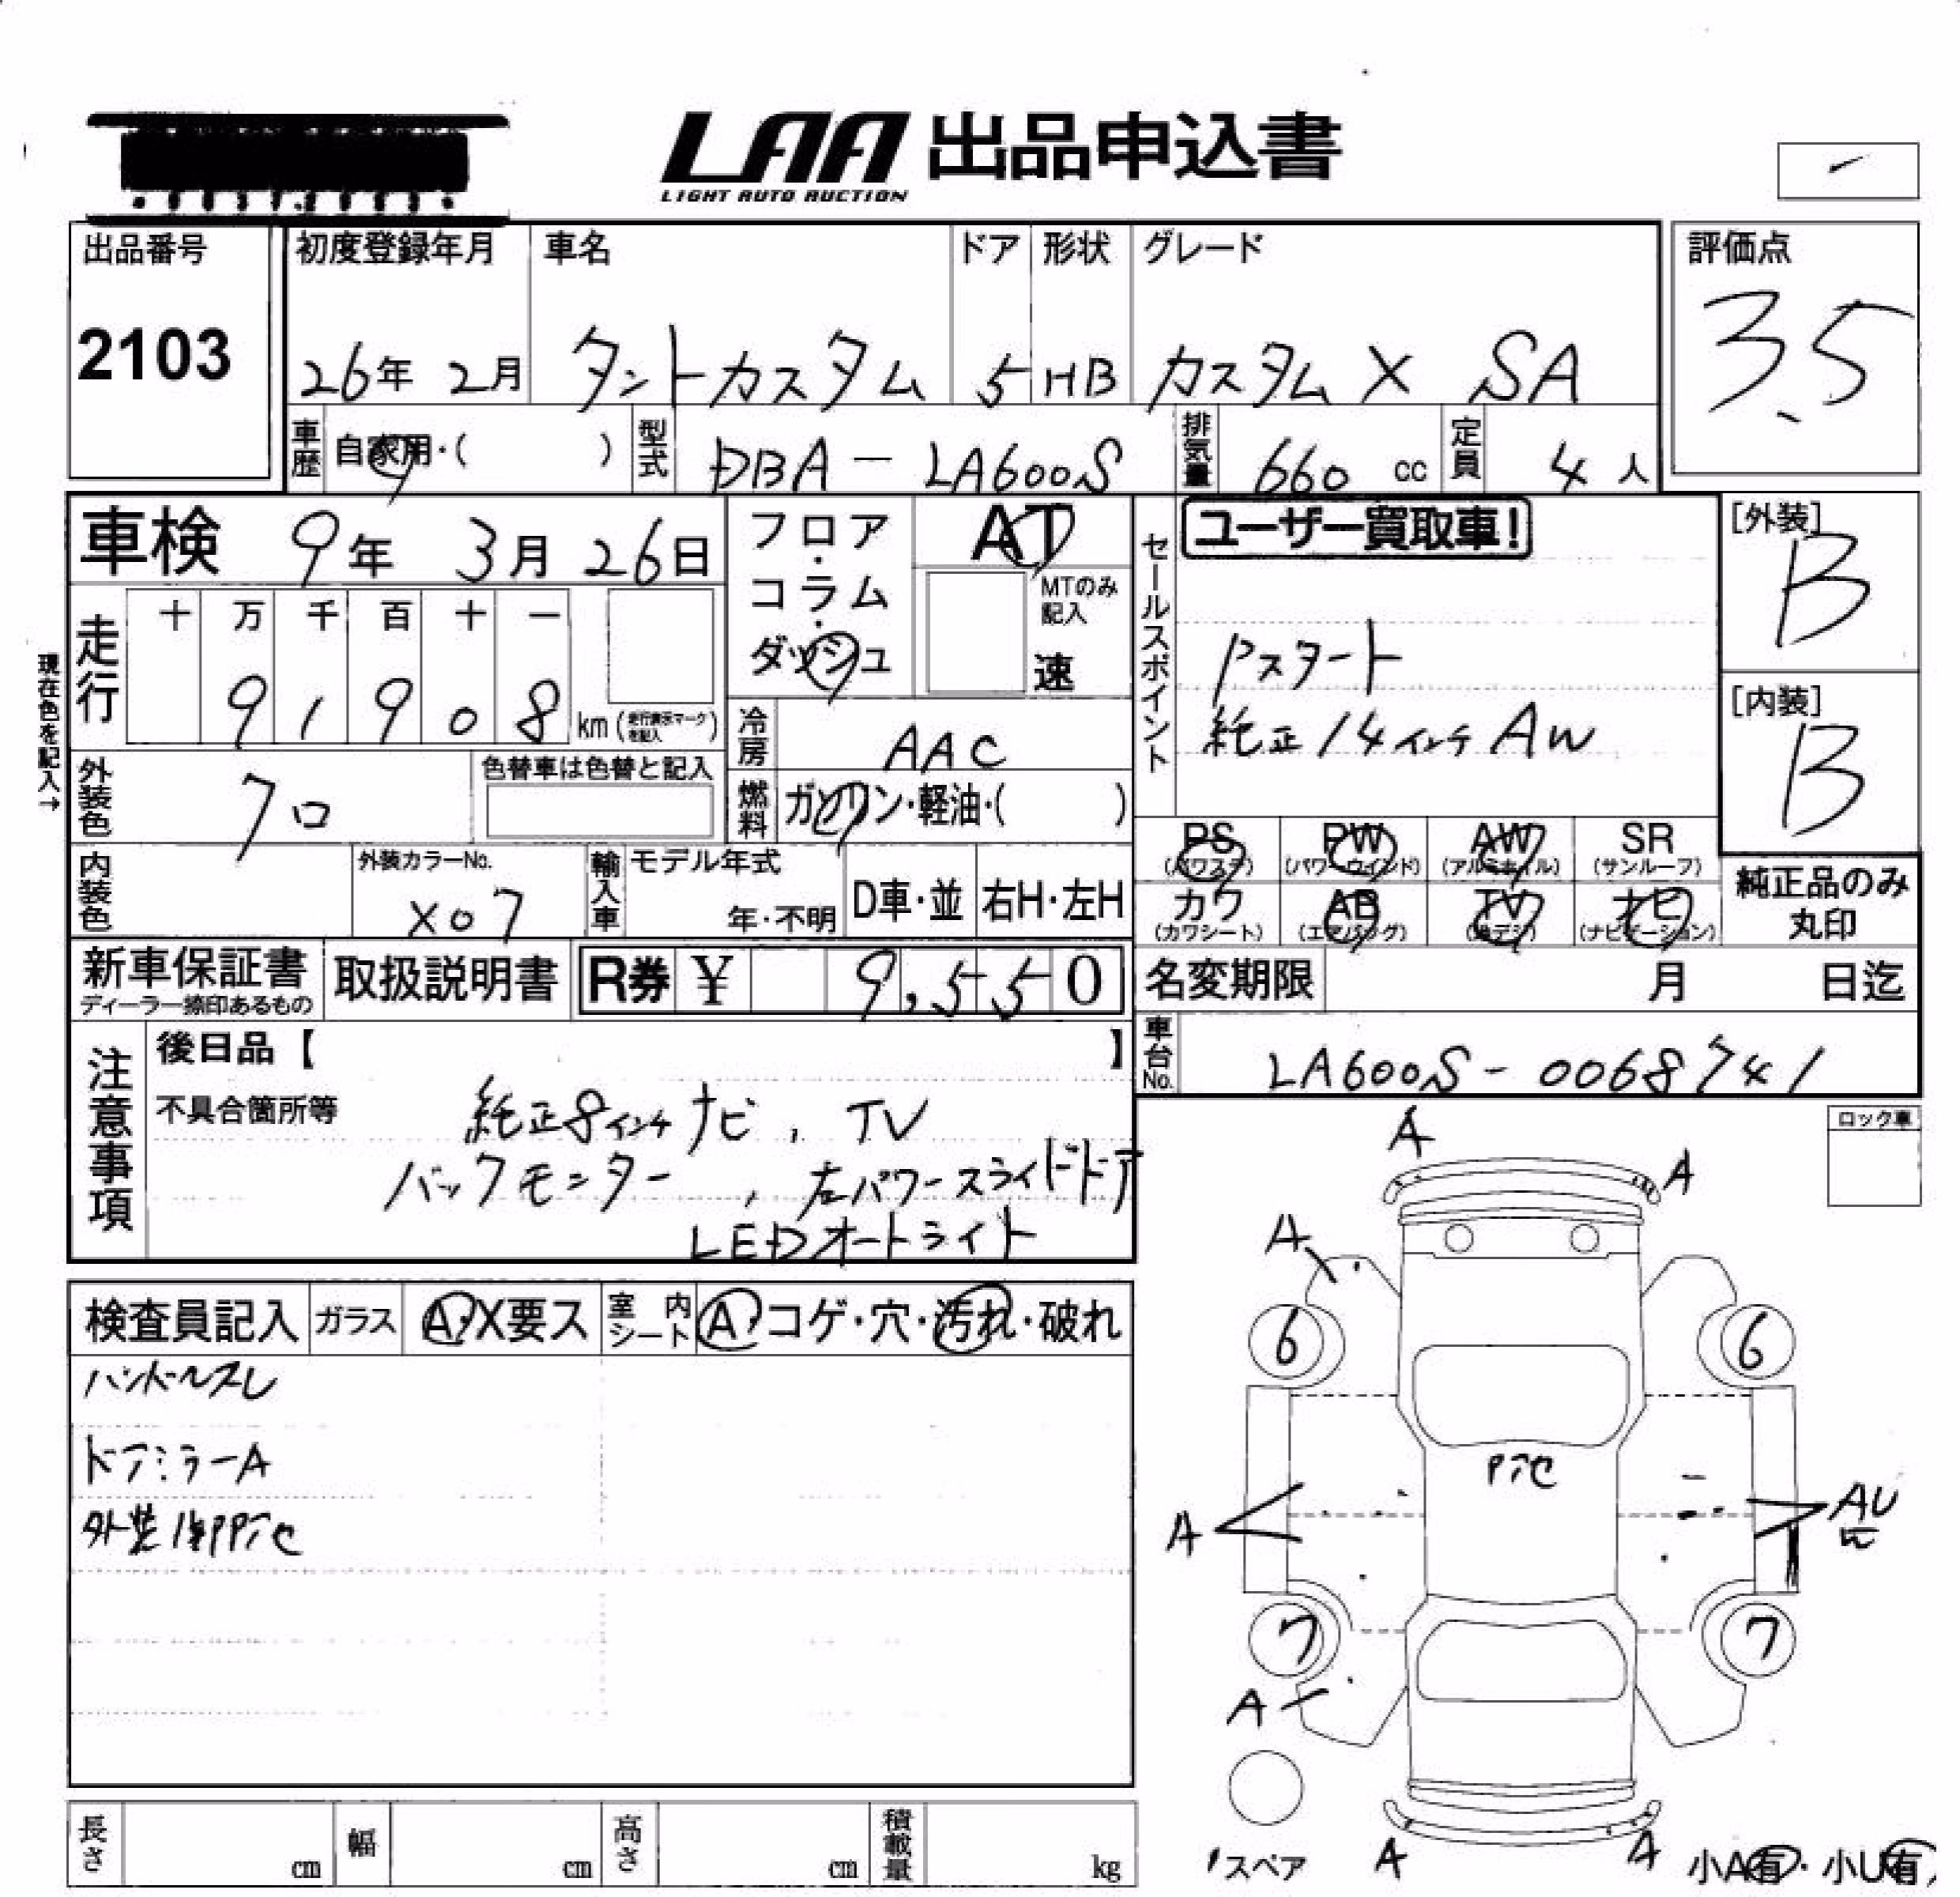 LAA 出品申込書
LIGHT AUTO AUCTION
出品番号 初度登録年月 車名 ドア 形状 グレード 評価点
2103 26年 2月 タントカスタム 5 HB カスタム X SA 3.5
車歴 自家用・( ) 型式 DBA - LA600S 排気量 660 cc 定員 4 人
車検 9年 3月 26日
フロア・コラム・ダッシュ
AT
MTのみ記入
速
セールスポイント
ユーザー買取車!
Pスタート
純正14インチ AW
[外装]
B
[内装]
B
現在色を記入→
走行 十 万 千 百 十 一
9 1 9 0 8 km (走行表示マークを記入)
冷房 AAC
外装色 クロ 色替車は色替と記入
燃料 ガソリン・軽油・( )
内装色 外装カラーNo. X07 輸入車 モデル年式 年・不明 D車・並 右H・左H
PS (パワステ) PW (パワーウインド) AW (アルミホイル) SR (サンルーフ)
カワ (カワシート) AB (エアバッグ) TV (地デジ) ナビ (ナビゲーション)
純正品のみ丸印
新車保証書 ディーラー捺印あるもの 取扱説明書 R券 ¥ 9,550
名変期限 月 日迄
車台No. LA600S - 0068741
注意事項
後日品【 】
不具合箇所等
純正8インチ ナビ , TV
バックモニター , 左パワースライドドア
LEDオートライト
ロック車
検査員記入 ガラス A・X要ス 室内シート A・コゲ・穴・汚れ・破れ
ハンドルスレ
ドアミラーA
外装
A A
A
6 6
A AU
7 7
A
スペア
A A
小A有・小U有
長さ cm 幅 cm 高さ cm 積載量 kg